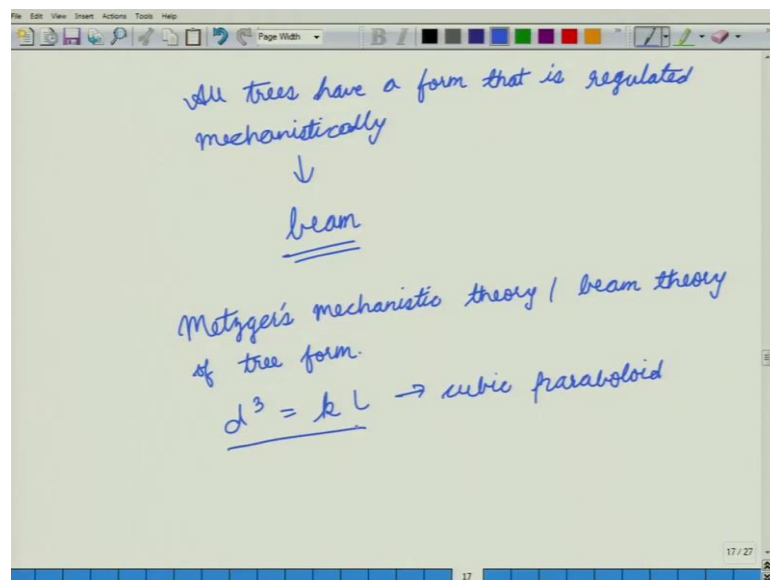 File Edit View Insert Actions Tools Help
Page Width
B I
All trees have a form that is regulated
mechanistically
↓
beam
Metzger's mechanistic theory / beam theory
of tree form.
d³ = k L → cubic paraboloid
17 / 27
17